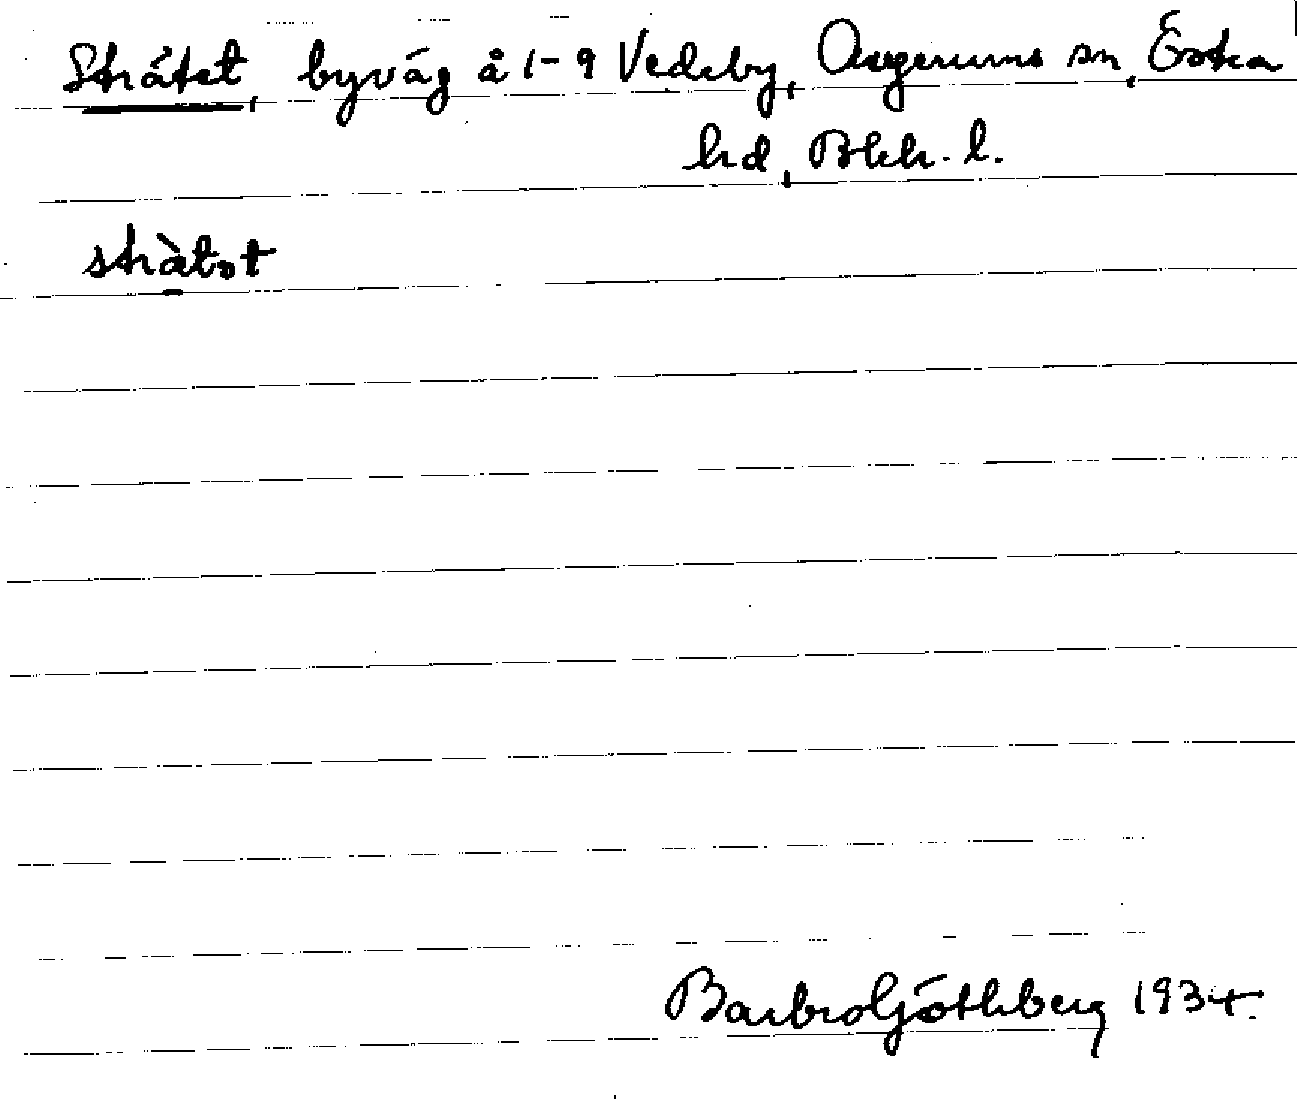 Stråtet, byväg å 1-9 Vedeby, Augerums sn, Östra
hd, Blek. l.
stràtət
Barbro Göthberg 1934.